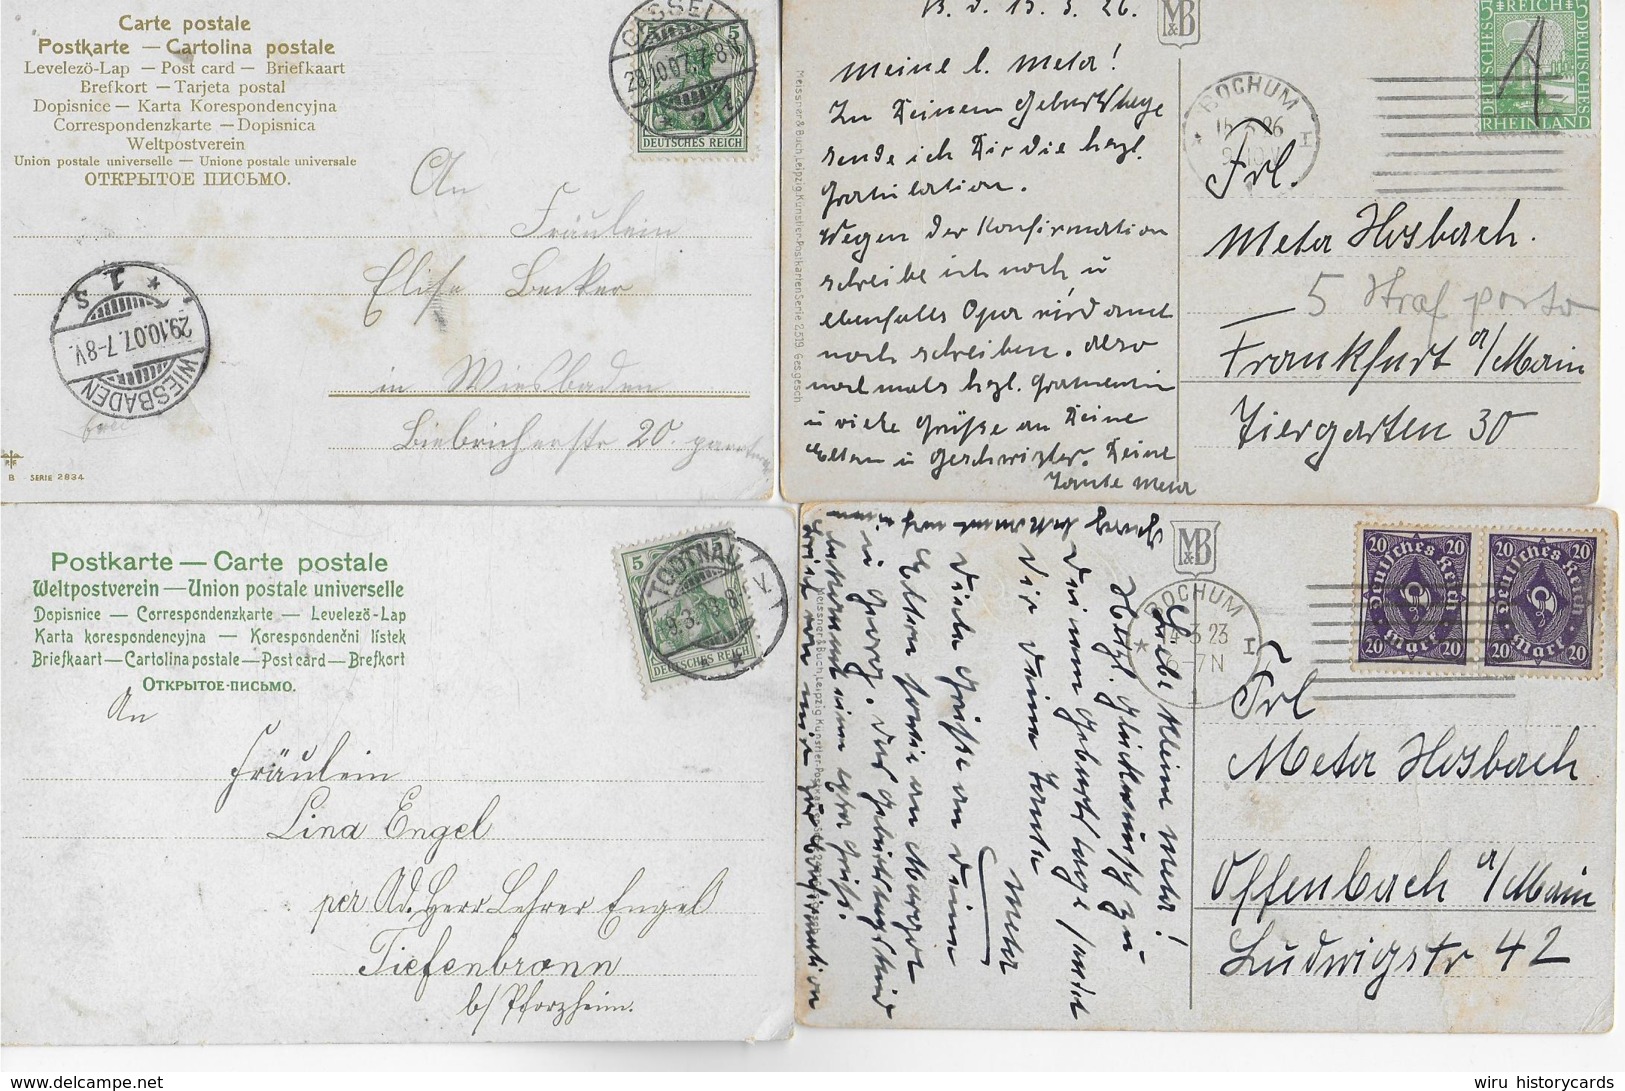 Carte postale
Postkarte — Cartolina postale
Levelezö-Lap — Post card — Briefkaart
Brefkort — Tarjeta postal
Dopisnice — Karta Korespondencyjna
Correspondenzkarte — Dopisnica
Weltpostverein
Union postale universelle — Unione postale universale
ОТКРЫТОЕ ПИСЬМО.
CASSEL
28.10.07. 7-8V.
* 2
5 5
DEUTSCHES REICH
An
Fräulein
Elise Becker
in Wiesbaden
Biebricherstr 20.
WIESBADEN
29.10.07. 7-8V.
* 1 S
B SERIE 2834
B. d. 15. 3. 26.
M&B
Meine l. Meta!
Zu Deinem Geburtstage
sende ich Dir die hrzl.
Gratulation.
Wegen der Konfirmation
schreibe ich noch u
ebenfalls Opa wird auch
noch schreiben. Also
nochmals hrzl.
u viele Grüße an Deine
Eltern u Geschwister. Deine
Tante Meta
Meissner & Buch, Leipzig. Künstler-Postkarten Serie 2519. Ges. gesch
BOCHUM
5 REICH 5
DEUTSCHES DEUTSCHES
RHEINLAND
Frl.
Meta Hosbach.
5 Strafporto
Frankfurt a/Main
Tiergarten 30
Postkarte — Carte postale
Weltpostverein — Union postale universelle
Dopisnice — Correspondenzkarte — Levelezö-Lap
Karta korespondencyjna — Korespondenčni lístek
Briefkaart — Cartolina postale — Post card — Brefkort
ОТКРЫТОЕ-ПИСЬМО.
TODTNAU
5 5
DEUTSCHES REICH
An
Fräulein
Lina Engel
per Ad. Herr Lehrer Engel
Tiefenbronn
b/ Pforzheim.
M&B
Liebe kleine Meta!
Herzl. Glückwunsch zu
Deinem Geburtstage sendet
Dir Deine Tante
Meta
Viele Grüße an Deine
Eltern sowie an Margot
u Georg.
Meissner & Buch, Leipzig Künstler-Pos
BOCHUM
14.3.23
20 20
Deutsches Reich
20 Mark 20
20 20
Deutsches Reich
20 Mark 20
Frl
Meta Hosbach
Offenbach a/Main
Ludwigstr 42
wiru historycards